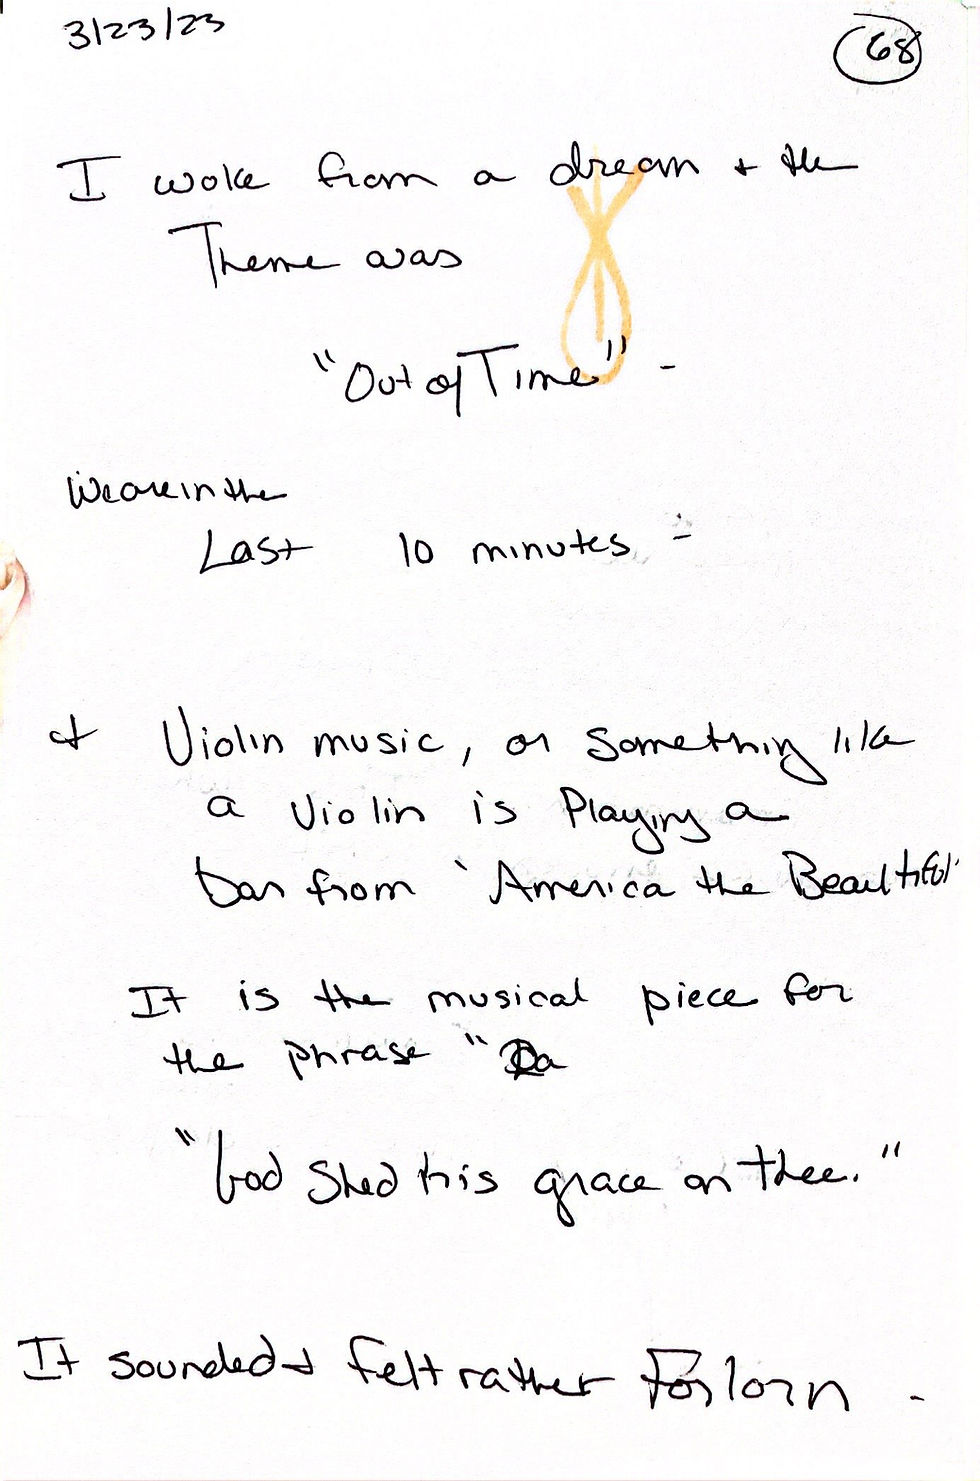 3/23/23
68
I woke from a dream + the
Theme was
"Out of Time" -
We are in the
Last 10 minutes -
+ Violin music, or something like
a violin is Playing a
bar from 'America the Beautiful'
It is the musical piece for
the phrase "Da
"God Shed his grace on thee."
It sounded + felt rather Forlorn -